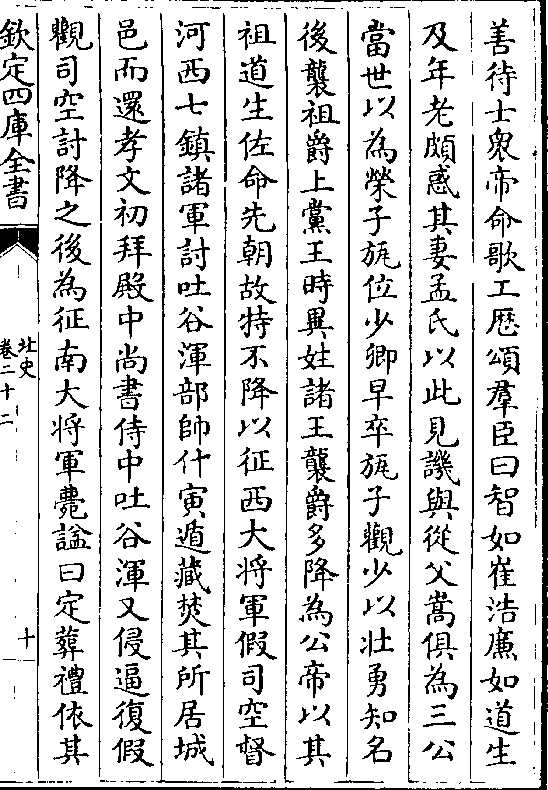 善待士衆帝命歌工厯頌羣臣曰智如崔浩廉如道生
及年老頗惑其妻孟氏以此見譏與從父嵩俱為三公
當世以為榮子旄位少卿早卒旄子觀少以壯勇知名
後襲祖爵上黨王時異姓諸王襲爵多降為公帝以其
祖道生佐命先朝故特不降以征西大将軍假司空督
河西七鎮諸軍討吐谷渾部帥什寅遁藏焚其所居城
邑而還孝文初拜殿中尚書侍中吐谷渾又侵逼復假
觀司空討降之後為征南大将軍薨諡曰定葬禮依其
欽定四庫全書
北史
卷二十二
十